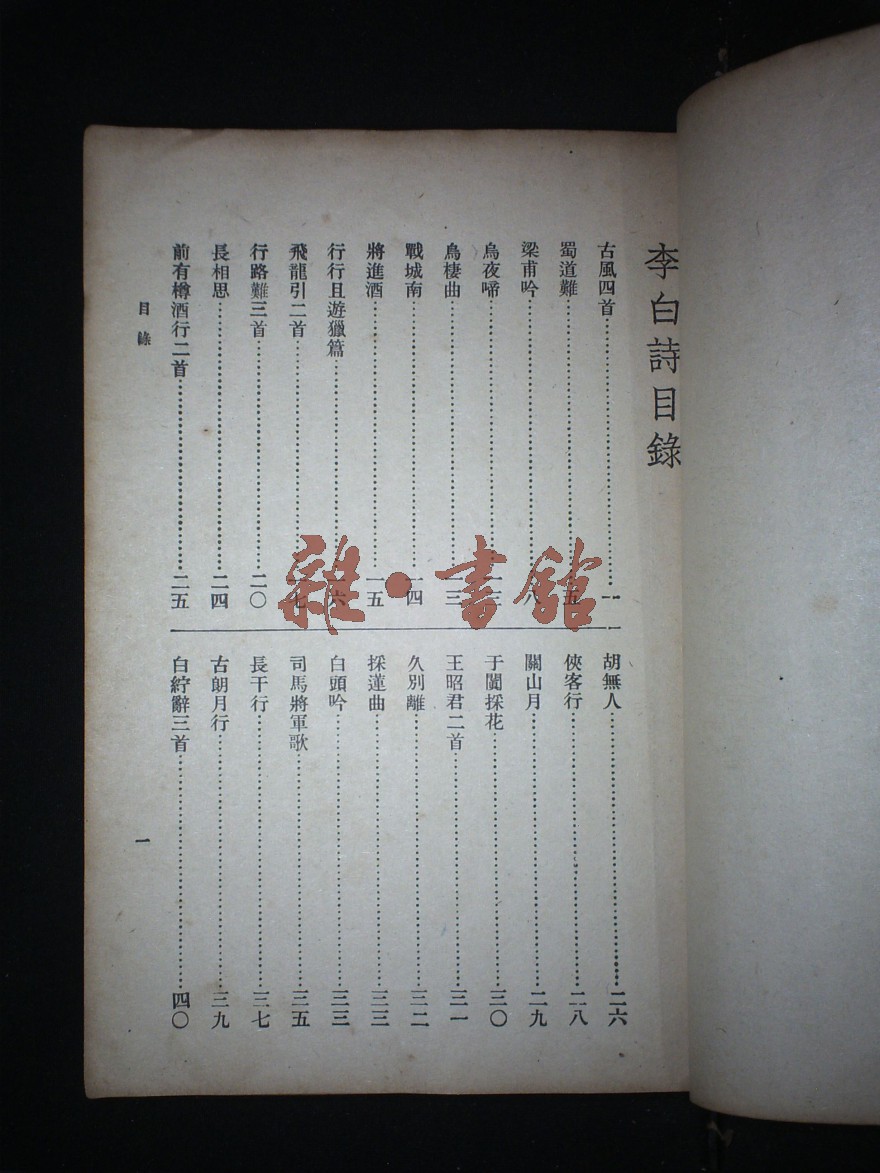 李白詩目錄
古風四首……一
蜀道難……五
梁甫吟……八
烏夜啼……一三
烏棲曲……一三
戰城南……一四
將進酒……一五
行行且遊獵篇……一六
飛龍引二首……一七
行路難三首……二〇
長相思……二四
前有樽酒行二首……二五
胡無人……二六
俠客行……二八
關山月……二九
于闐採花……三〇
王昭君二首……三一
久別離……三二
採蓮曲……三三
白頭吟……三三
司馬將軍歌……三五
長干行……三七
古朗月行……三九
白紵辭三首……四〇
目錄
一
雜·書館